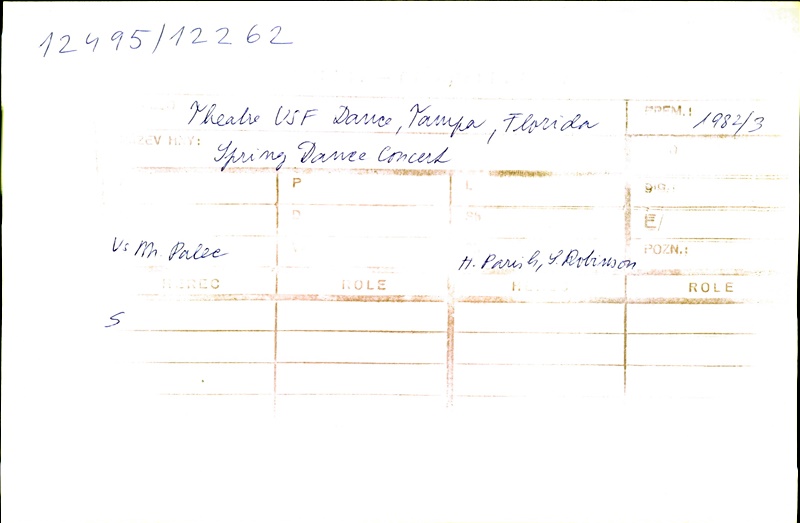 12495/12262
Theatre USF Dance, Tampa, Florida
PREM.: 1982/3
ZEV HRY:
Spring Dance Concert
P
L
Vs Iva. Palec
H. Parish, S. Robinson
POZN.:
HEREC ROLE ROLE
S